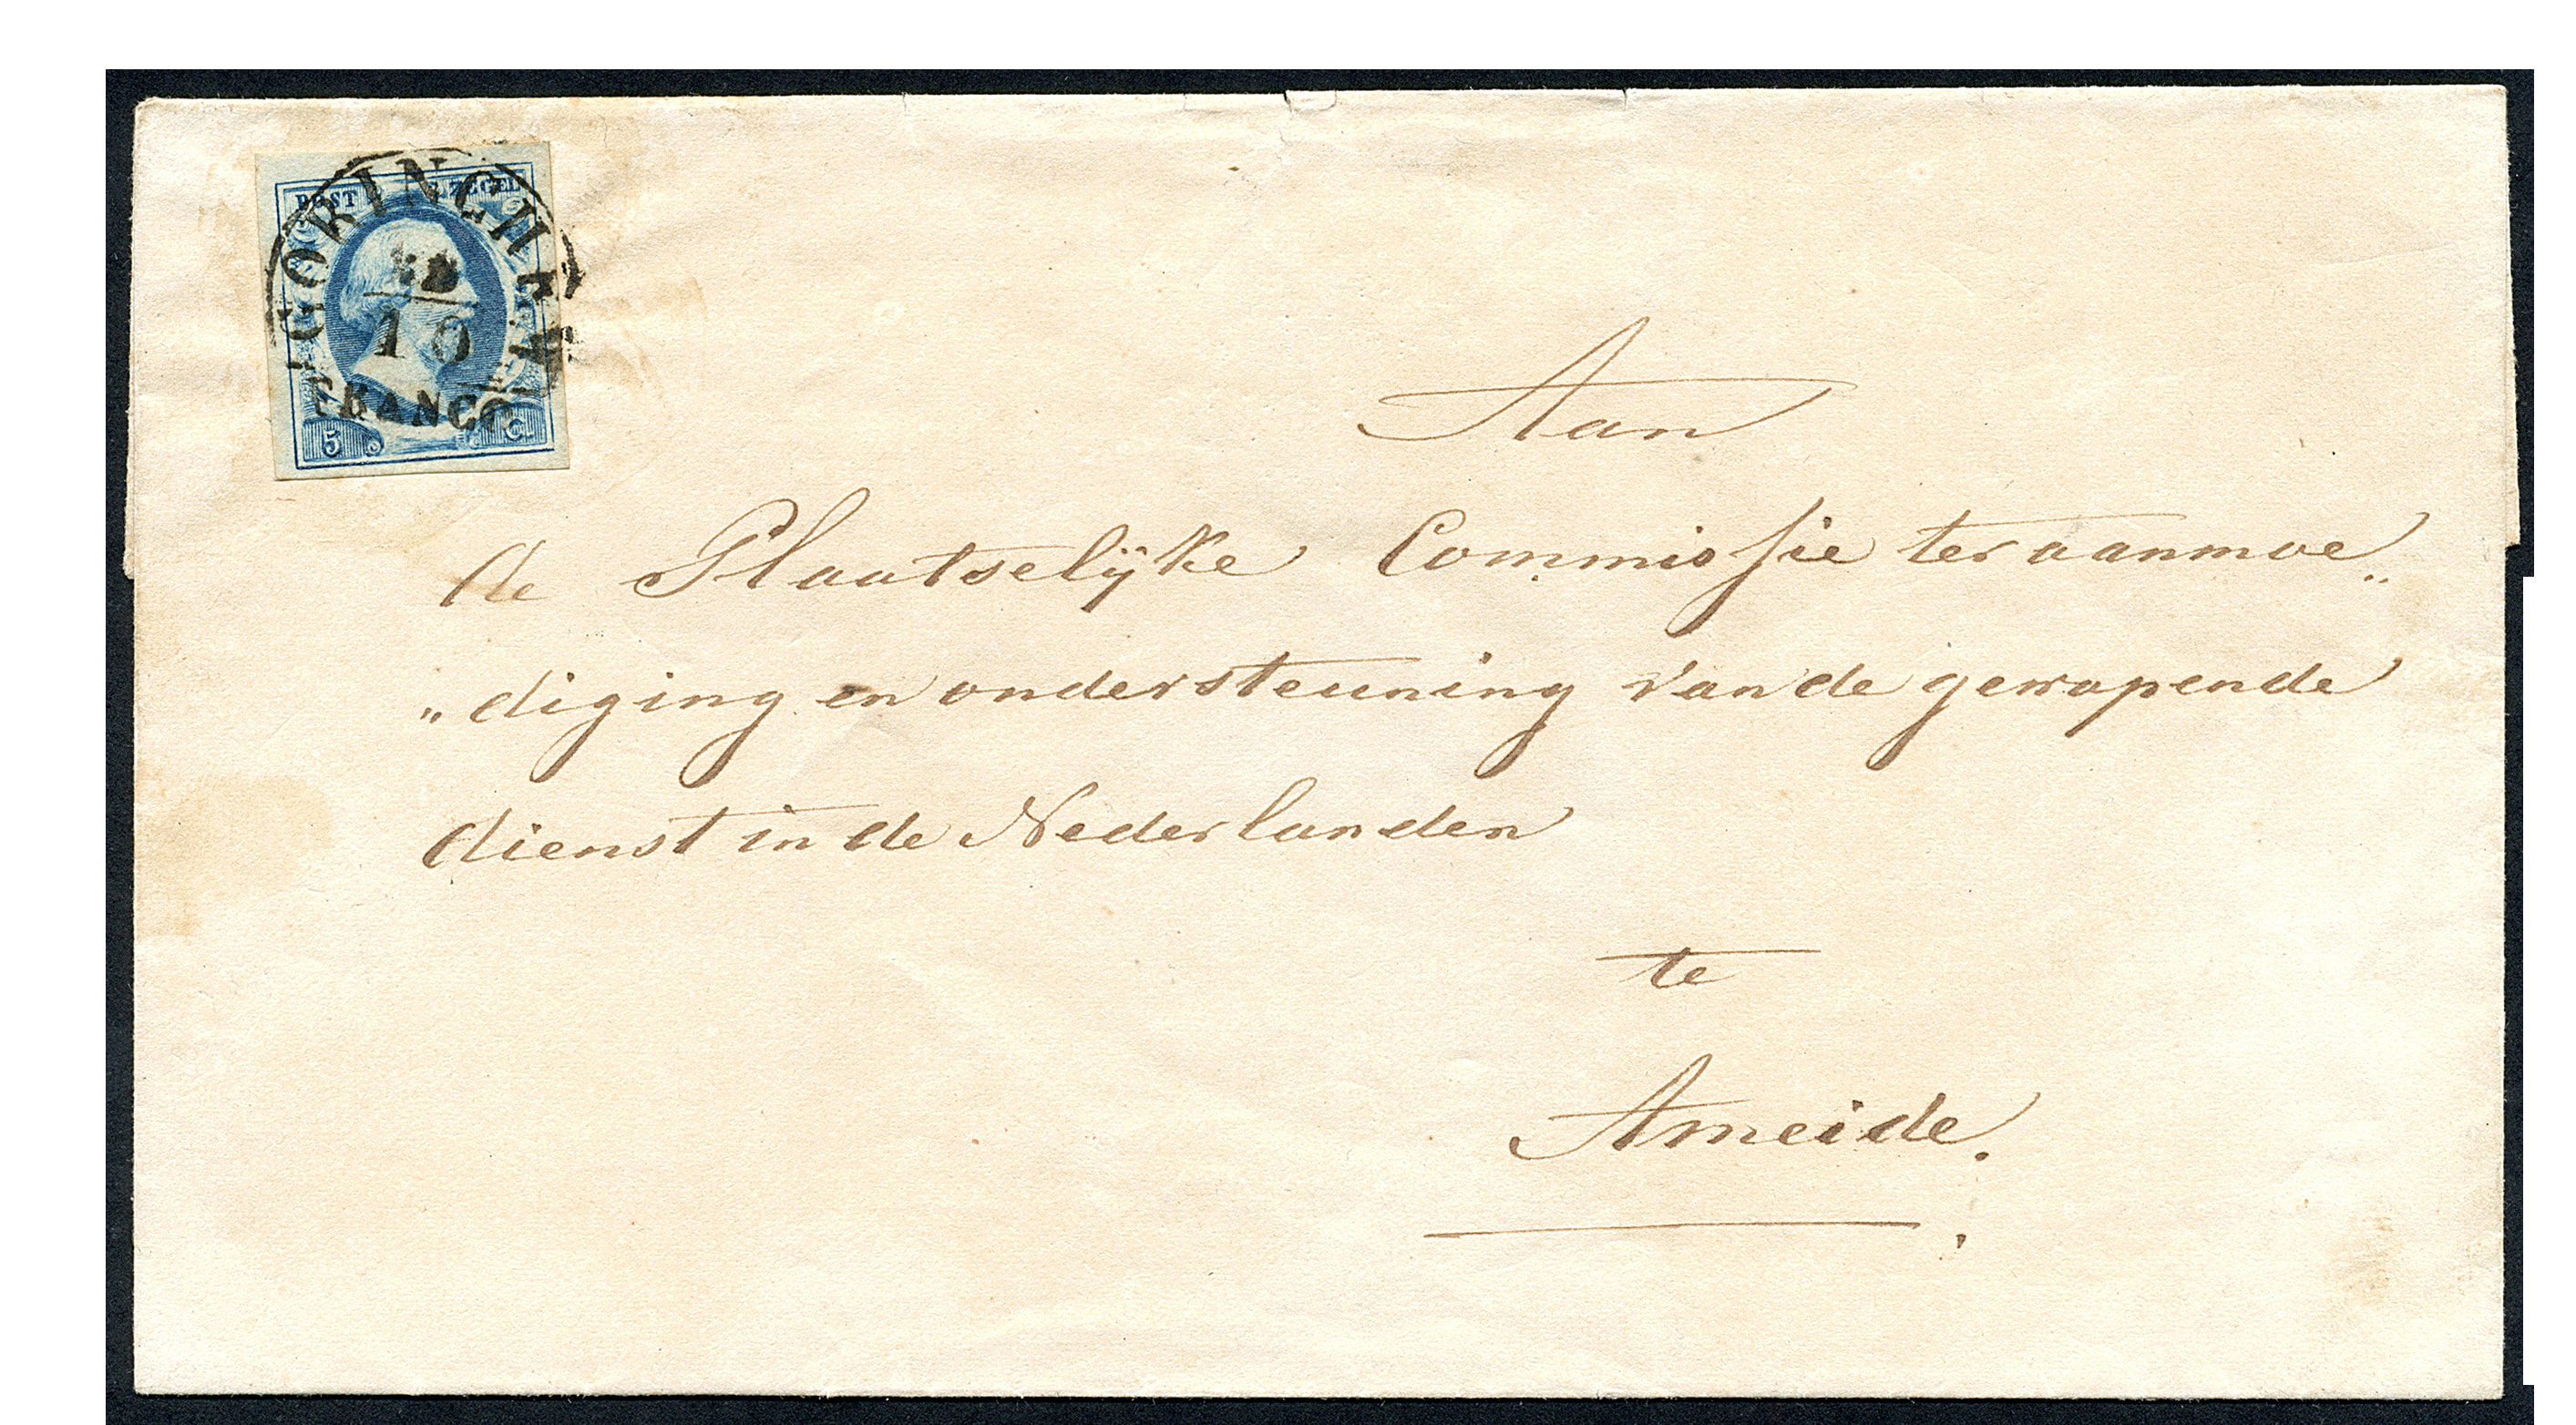 POST ZEGEL
GORINCHEM
10
FRANCO
5 C.
Aan
de Plaatselÿke Commissie ter aanmoe„
„diging en ondersteuning van de gewapende
dienst in de Nederlanden
te
Ameide.